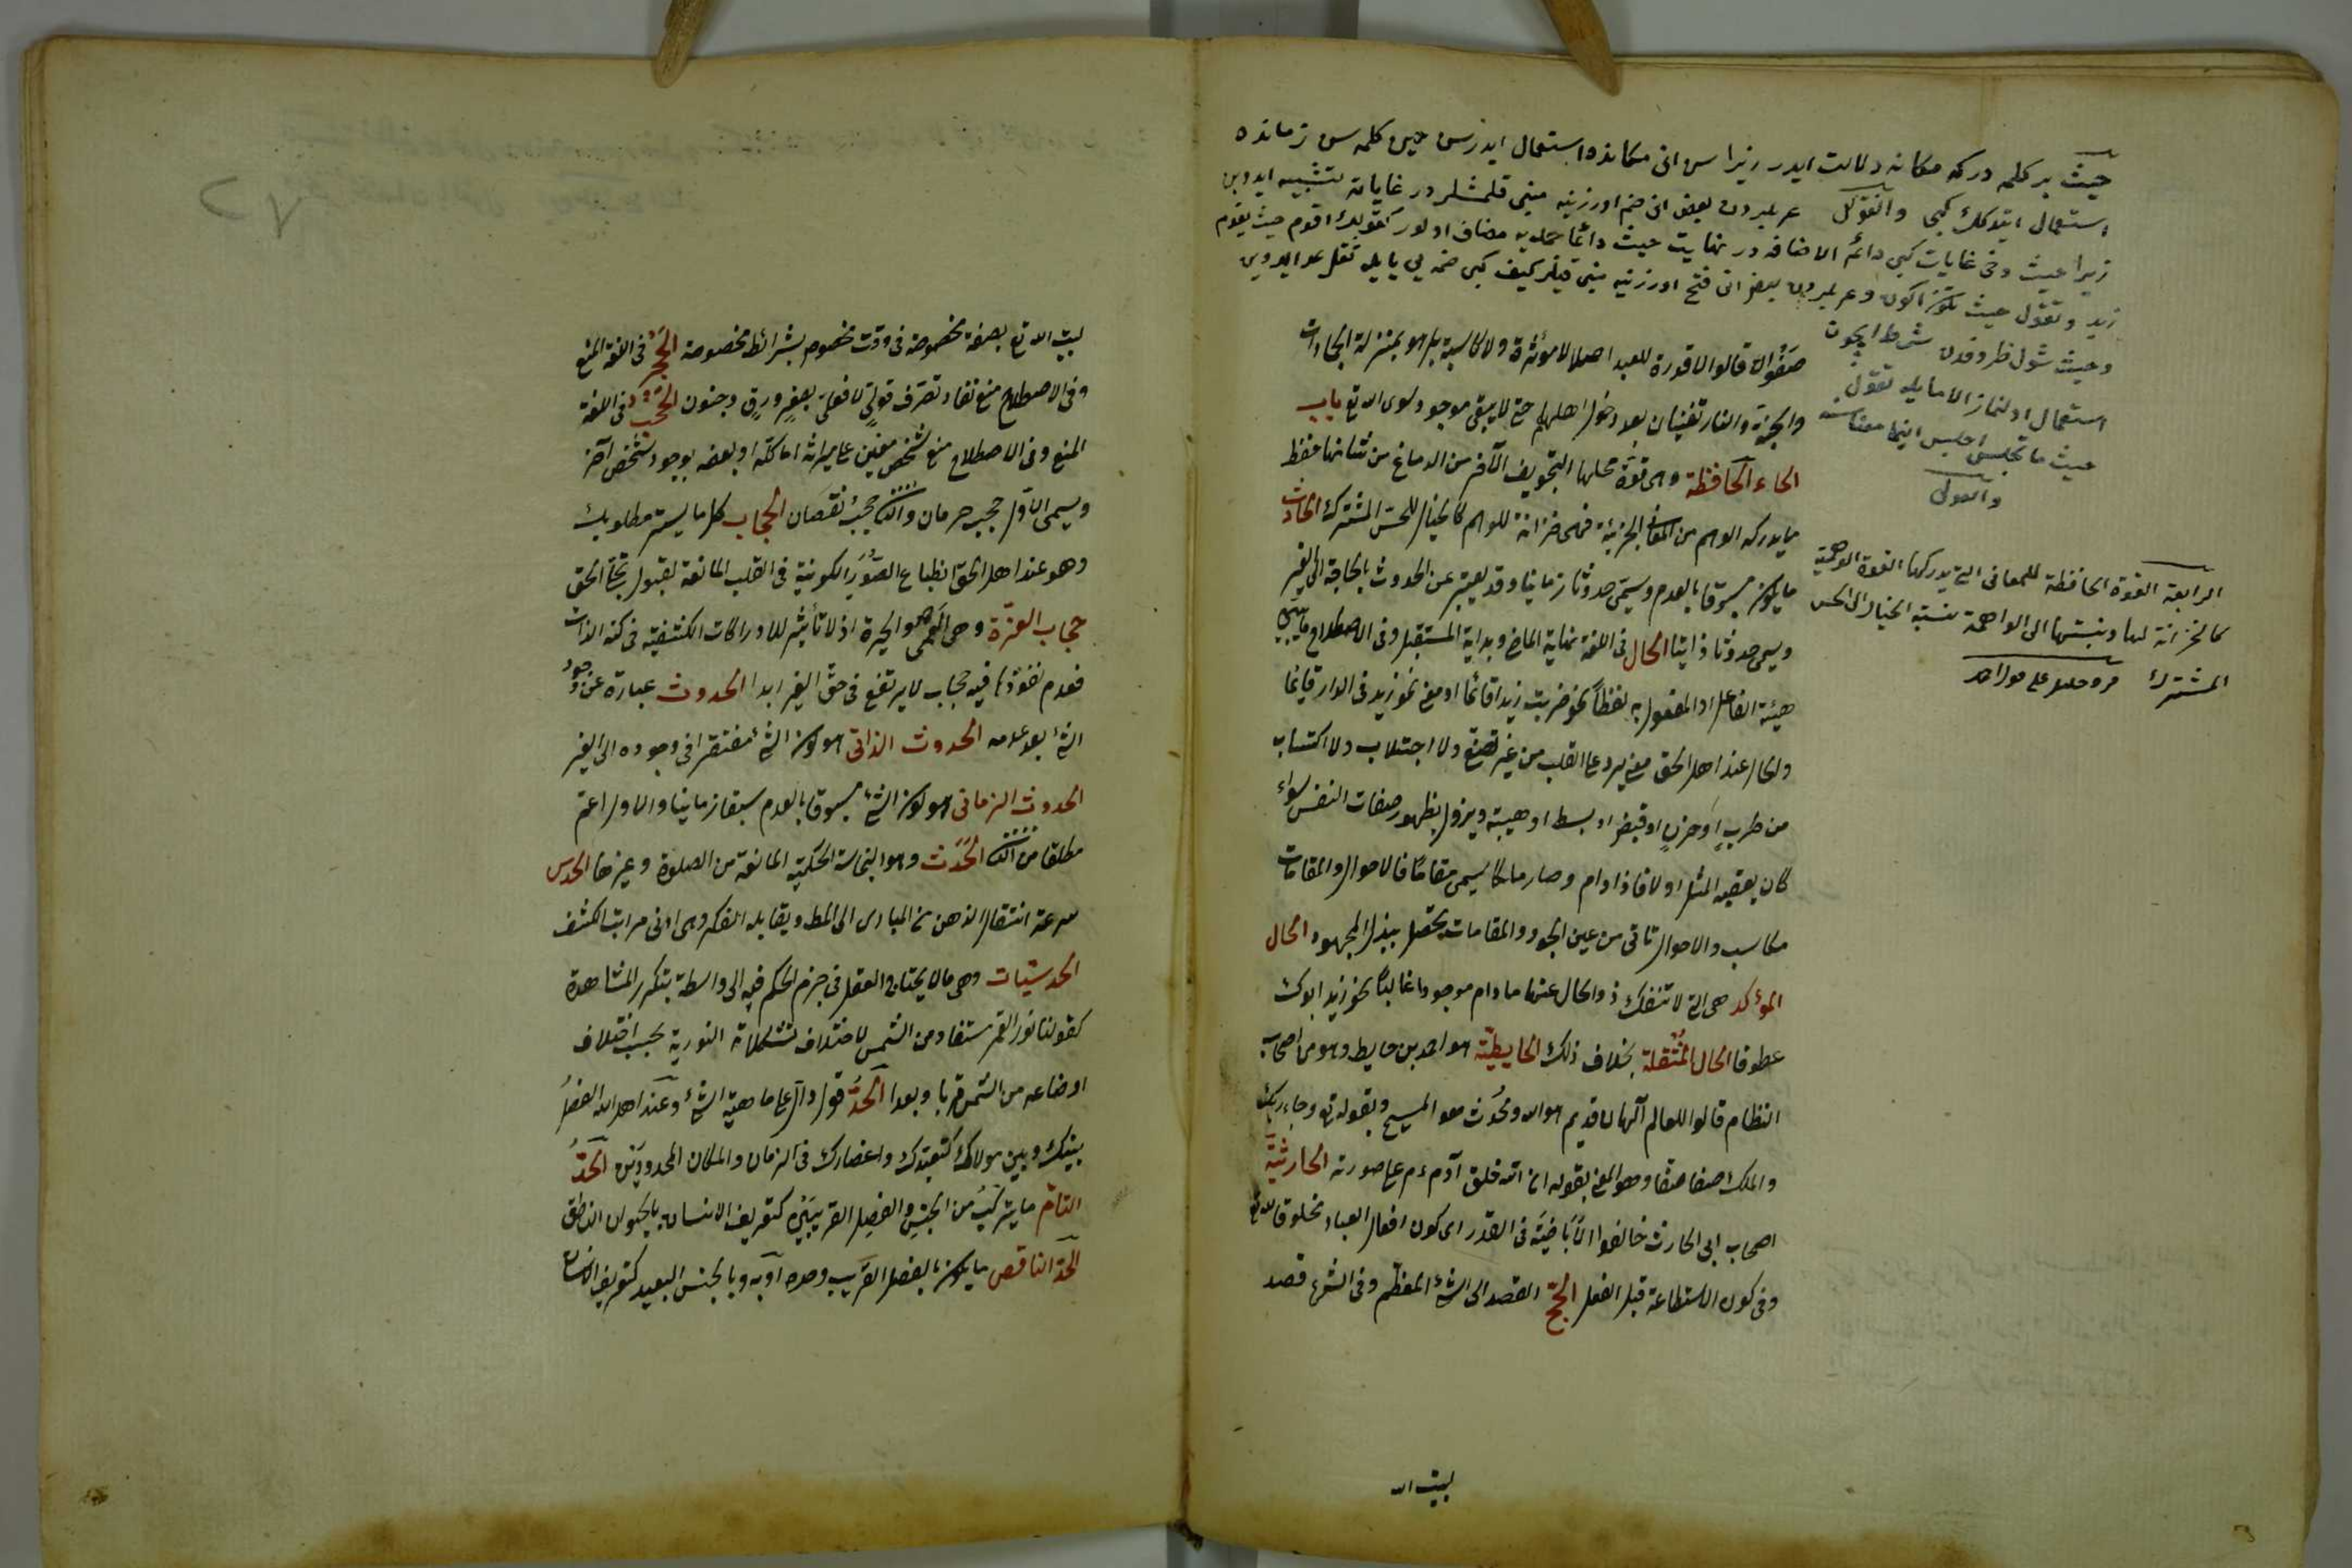 حيث بر كلمه در كه مكانه دلالت ايدر زيرا سن انى مكانده استعمال ايدرسن حين كلمه سن زمانده
استعمال ايتدكك كبى عربلردن بعض انى ضم اوزرينه مبنى قلمشلر در غاياته تشبيه ايدوب
زيرا حيث دخى غايات كبى دائم الاضافه در نهايت حيث دائما جمله يه مضاف اولور كقولك اقوم حيث يقوم
زيد وتقول حيث تكون اكون وعربلردن بعض انى فتح اوزرينه مبنى قيلر كيف كبى ضمه يى يايله
وحيث شول ظروفدن شرط ايچون
استعمال اولنماز الا ما يله تقول
حيث ما تجلس اجلس اينما معناسنه
الرابعة القوة الحافظة للمعانى التى يدركها القوة الوهمية
كالخزانة لها ونسبتها الى الواهمة نسبة الخيال الى الحس
المشترك
صفوان قالوا لا قدرة للعبد اصلا لا مؤثرة ولا كاسبة بل هو بمنزلة الجمادات
والجنة والنار تفنيان بعد دخول اهلهما حتى لا يبقى موجود سوى الله تع باب
الحاء الحافظة وهى قوة محلها التجويف الآخر من الدماغ من شانها حفظ
ما يدركه الوهم من المعانى الجزئية فهى خزانة للوهم كالخيال للحس المشترك الحادث
ما يكون مسبوقا بالعدم ويسمى حدوثا زمانيا وقد يعبر عن الحدوث بالحاجة الى الغير
ويسمى حدوثا ذاتيا الحال فى اللغة نهاية الماضى وبداية المستقبل وفى الاصطلاح ما يبين
هيئة الفاعل او المفعول به لفظا نحو ضربت زيدا قائما او معنى نحو زيد فى الدار قائما
والحال عند اهل الحق معنى يرد على القلب من غير تصنع ولا اجتلاب ولا اكتساب
من طرب او حزن او قبض او بسط او هيبة ويزول بظهور صفات النفس سواء
كان يعقبه المثل اولا فاذا دام وصار ملكا يسمى مقاما فالاحوال والمقامات
مكاسب والاحوال تأتى من عين الجود والمقامات تحصل ببذل المجهود الحال
المؤكد هى التى لا تنفك ذو الحال عنها ما دام موجودا غالبا نحو زيد ابوك
عطوفا الحال المنتقلة بخلاف ذلك الحايطية هو احمد بن حايط وهو من اصحاب
النظام قالوا للعالم آلهان قديم هو الله ومحدث هو المسيح وبقوله تع وجاء ربك
والملك صفا صفا وهو المعنى بقوله ان الله خلق آدم ءم على صورته الحارثية
اصحاب ابى الحارث خالفوا الاباضية فى القدر اى كون افعال العباد مخلوقا لله تع
وفى كون الاستطاعة قبل الفعل الحج القصد الى الشئ المعظم وفى الشرع قصد
بيت الله
بيت الله تع بصفة مخصوصة فى وقت مخصوص بشرائط مخصوصة الحجر فى اللغة المنع
وفى الاصطلاح منع نفاذ تصرف قولى لا فعلى بصغر ورق وجنون الحجب فى اللغة
المنع وفى الاصطلاح منع شخص معين عن ميراثه اما كله او بعضه بوجود شخص آخر
ويسمى الاول حجب حرمان والثانى حجب نقصان الحجاب كل ما يستر مطلوبك
وهو عند اهل الحق انطباع الصور الكونية فى القلب المانعة لقبول تجلى الحق
حجاب العزة وهى العمى والحيرة اذ لا تأثير للادراكات الكشفية فى كنه الذات
فعدم نفوذها فيه حجاب لا يرتفع فى حق الغير ابدا الحدوث عبارة عن وجود
الشئ بعد عدمه الحدوث الذاتى هو كون الشئ مفتقرا فى وجوده الى الغير
الحدوث الزمانى هو كون الشئ مسبوقا بالعدم سبقا زمانيا والاول اعم
مطلقا من الثانى الحدث وهو النجاسة الحكمية المانعة من الصلوة وغيرها الحدس
سرعة انتقال الذهن من المبادى الى المط ويقابله الفكر وهى ادنى مراتب الكشف
الحدسيات وهى ما لا يحتاج العقل فى جزم الحكم فيه الى واسطة بتكرر المشاهدة
كقولنا نور القمر مستفاد من الشمس لاختلاف تشكلاته النورية بحسب اختلاف
اوضاعه من الشمس قربا وبعدا الحد قول دال على ماهية الشئ وعند اهل الله الفصل
بينك وبين مولاك كتعبدك وانحصارك فى الزمان والمكان المحدودين الحد
التام ما يتركب من الجنس والفصل القريبين كتعريف الانسان بالحيوان الناطق
الحد الناقص ما يكون بالفصل القريب وحده او به وبالجنس البعيد كتعريف الانسان